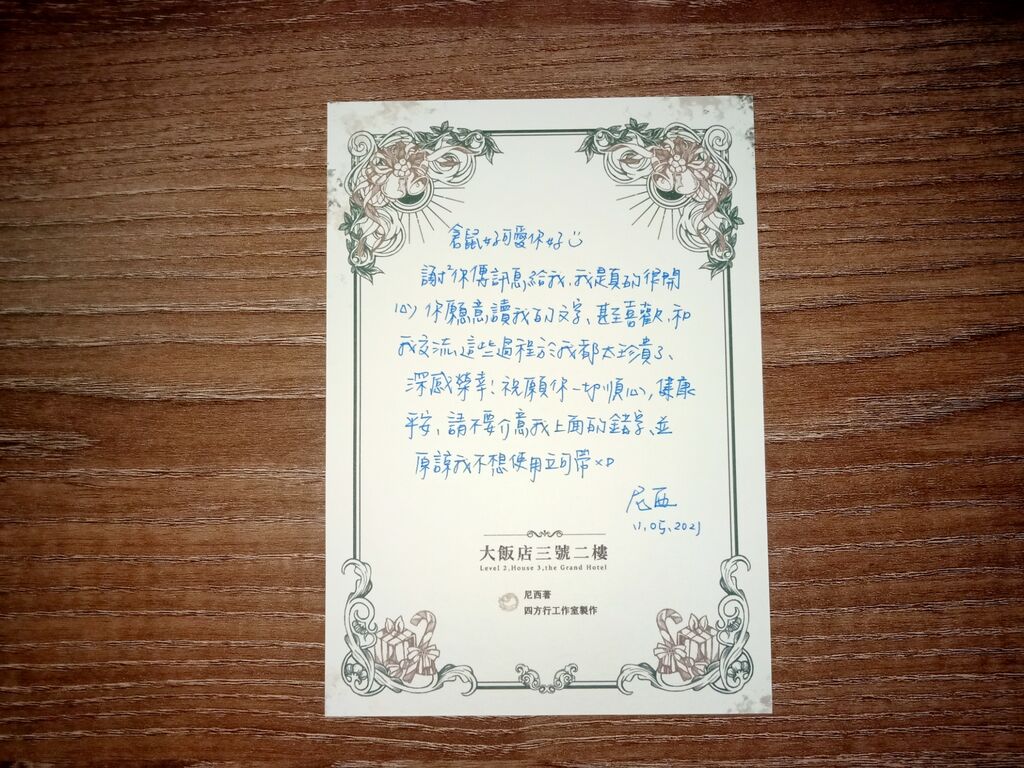 倉鼠好可愛你好
謝²你傳訊息給我、我是真的很開
心你願意讀我的文字、甚至喜歡、和
我交流、這些過程於我都太珍貴了、
深感榮幸！祝願你一切順心，健康
平安、請不要介意我上面的錯字、並
原諒我不想使用立可帶 XD
尼西
11.05.2021
大飯店三號二樓
Level 2, House 3, the Grand Hotel
尼西著
四方行工作室製作